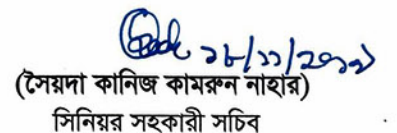 ২৮/১১/২০১৭
(সৈয়দা কানিজ কামরুন নাহার)
সিনিয়র সহকারী সচিব